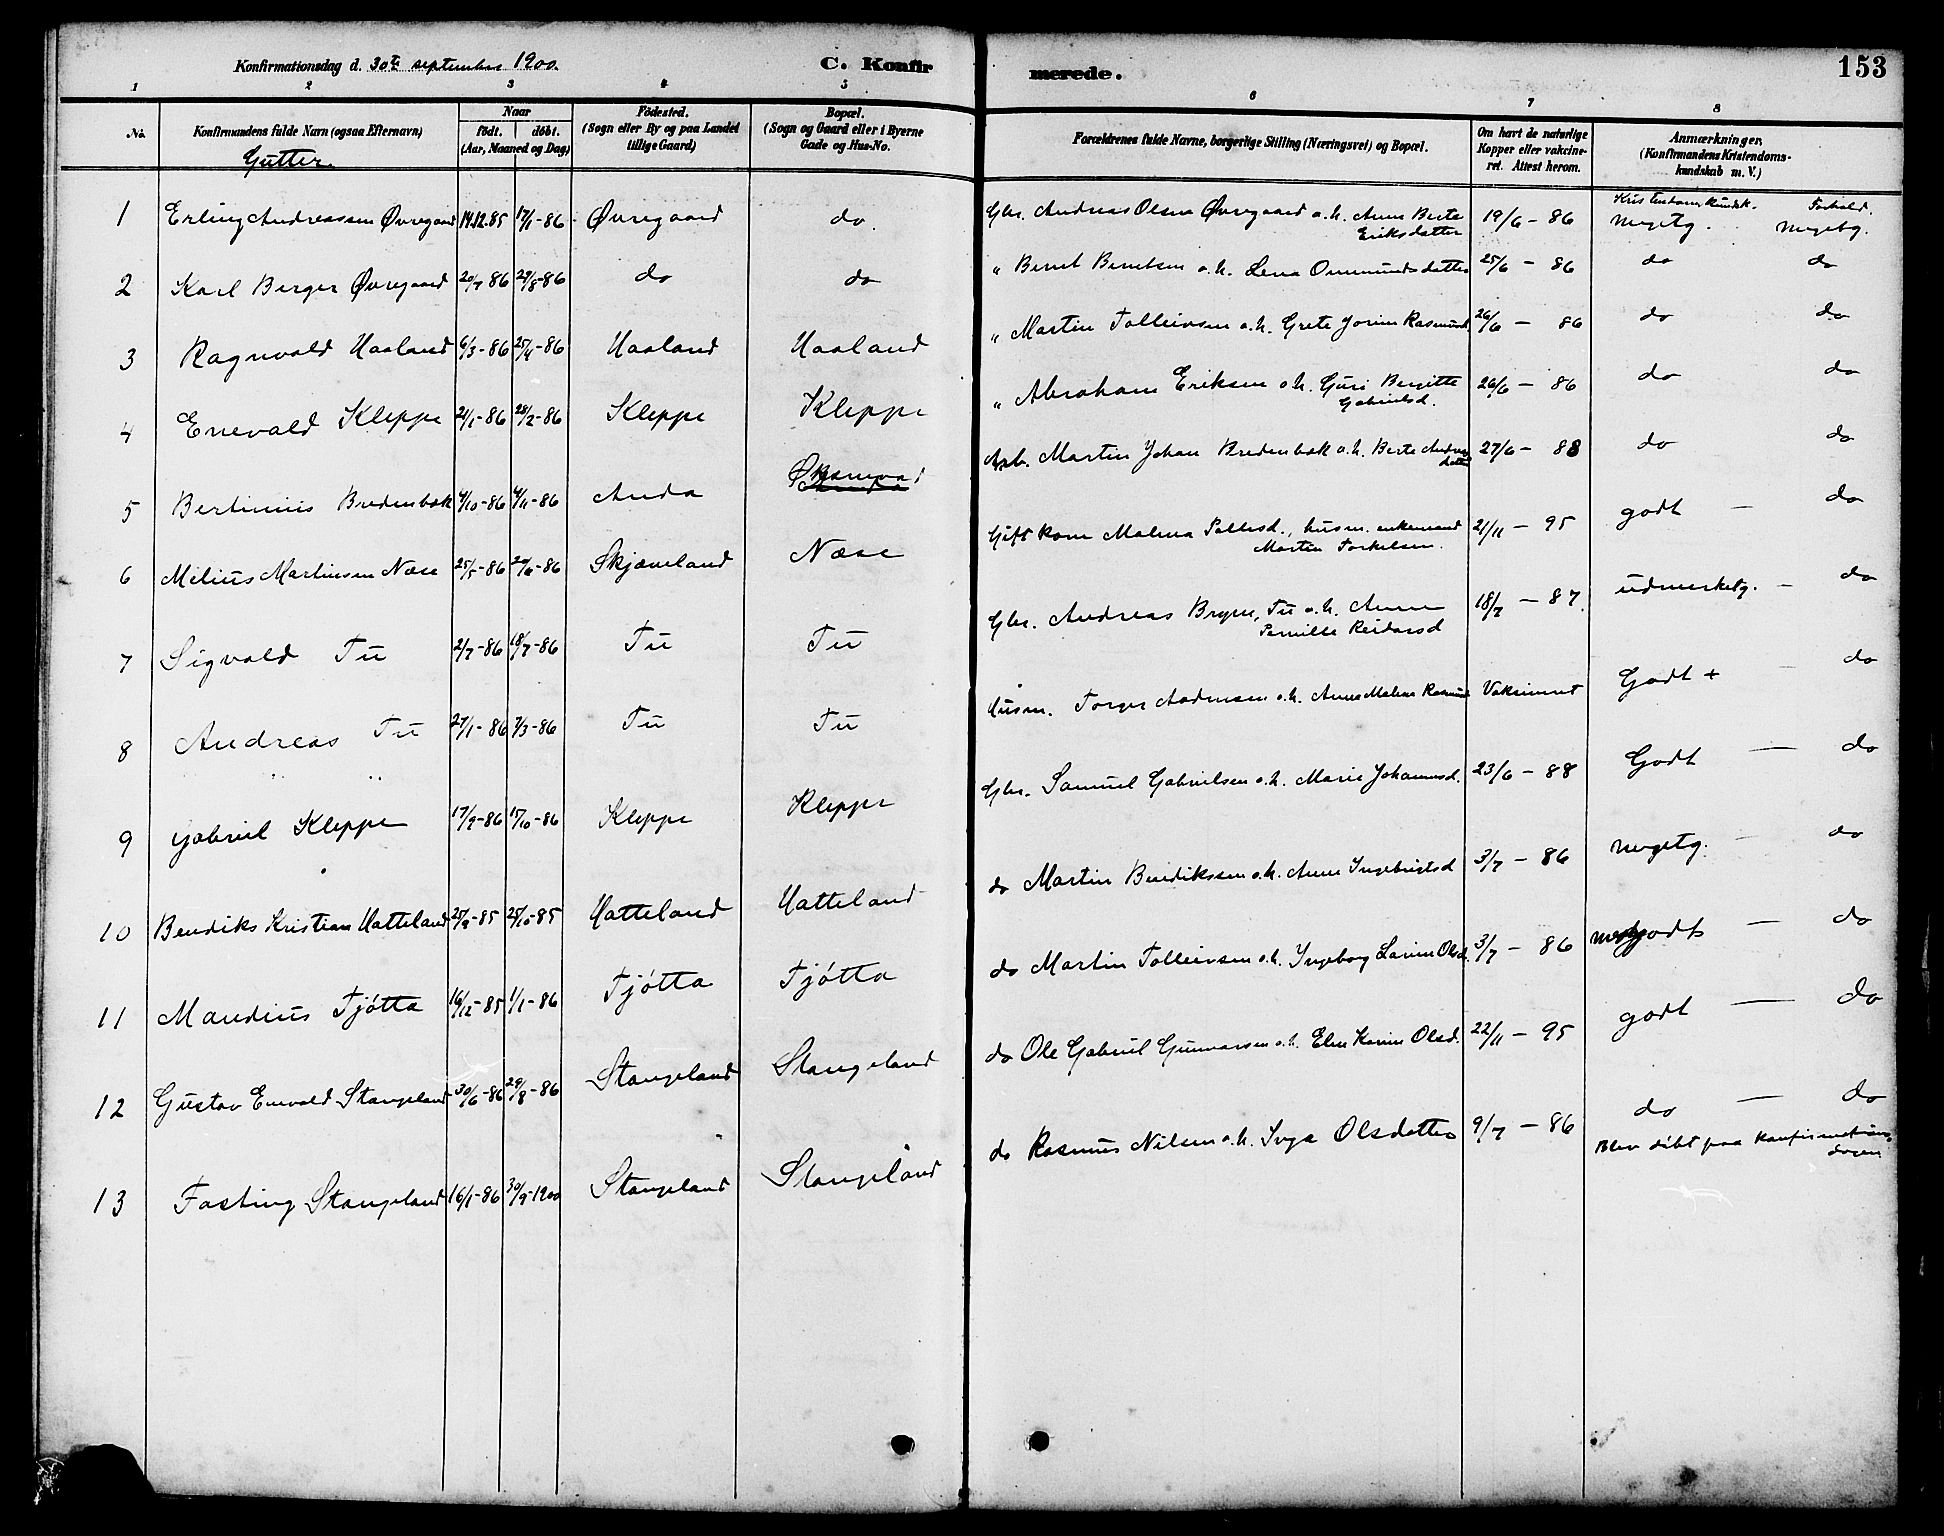 Konfirmationsdag d. 30te september 1900.
C. Konfirmerede.
153
1 2 3 4 5 6 7 8
No. Konfirmandens fulde Navn (ogsaa Efternavn) Naar födt. döbt. (Aar, Maaned og Dag) Födested. (Sogn eller By og paa Landet tillige Gaard) Bopæl. (Sogn og Gaard eller i Byerne Gade og Hus-No. Forældrenes fulde Navne, borgerlige Stilling (Næringsvei) og Bopæl. Om havt de naturlige Kopper eller vakcineret. Attest herom. Anmærkninger. (Konfirmandens Kristendomskundskab m. V.)
Gutter.
Kristendomskundsk. Forhold.
1 Erling Andreassen Øvregaard 14.12.85 17/1-86 Øvregaard do. Gbr. Andreas Olsen Øvregaard o.h. Anne Berte Eriksdatter 19/6 - 86 megetg. megetg.
2 Karl Berger Øvregaard 20/7 86 29/8-86 do do " Bernt Berntsen o.h. Lena Ommundsdatter 25/6 - 86 do do
3 Ragnvald Haaland 6/3-86 25/4-86 Haaland Haaland " Martin Tolleivsen o.h. Grete Jorine Rasmusd. 26/6 - 86 do do
4 Enevald Kleppe 21/1-86 28/2-86 Kleppe Kleppe " Abraham Eriksen o.h. Guri Bergitte Gabrielsd. 26/6 - 86 do do
5 Bertinius Bredenbæk 4/10-86 4/11-86 Anda Øksnevad Arb. Martin Johan Bredenbæk o.h. Berte Andreasdatter 27/6 - 88 do do
6 Milius Martinsen Næse 25/5-86 Skjæveland Næse Gift kone Malena Pallesd., husm. enkemand Martin Torkelsen. 21/11 - 95 godt - do
7 Sigvald Tu 2/7-86 18/7-86 Tu Tu Gbr. Andreas Bryne, Tu o.h. Anne Pernille Reidarsd 18/7 - 87. udmerketg. - do
8 Andreas Tu 27/1-86 7/3-86 Tu Tu Husm. Torger Aadnesen o.h. Anne Malene Rasmusd. Vaksineret Godt + - do
9 Gabriel Kleppe 17/9-86 17/10-86 Kleppe Kleppe Gbr. Samuel Gabrielsen o.h. Marie Johannesd. 23/6 - 88 Godt - do
10 Bendiks Kristian Hatteland 25/9-85 25/10-85 Hatteland Hatteland do Martin Bendikssen o.h. Anne Ingebrigtsd 3/7 - 86 megetg. - do
11 Mandius Tjøtta 16/12-85 1/1-86 Tjøtta Tjøtta do Martin Tolleivsen o.h. Ingeborg Lavine Olsd. 3/7 - 86 godt - do
12 Gustav Enevald Stangeland 30/6-86 29/8-86 Stangeland Stangeland do Ole Gabriel Gunnarsen o.h. Elen Karine Olsd. 22/11 - 95 godt - do
13 Fasting Stangeland 16/1-86 30/9-1900 Stangeland Stangeland do Rasmus Nilsen o.h. Inga Olsdatter 9/7 - 86 do - do
Blev döbt paa konfirmationsdagen